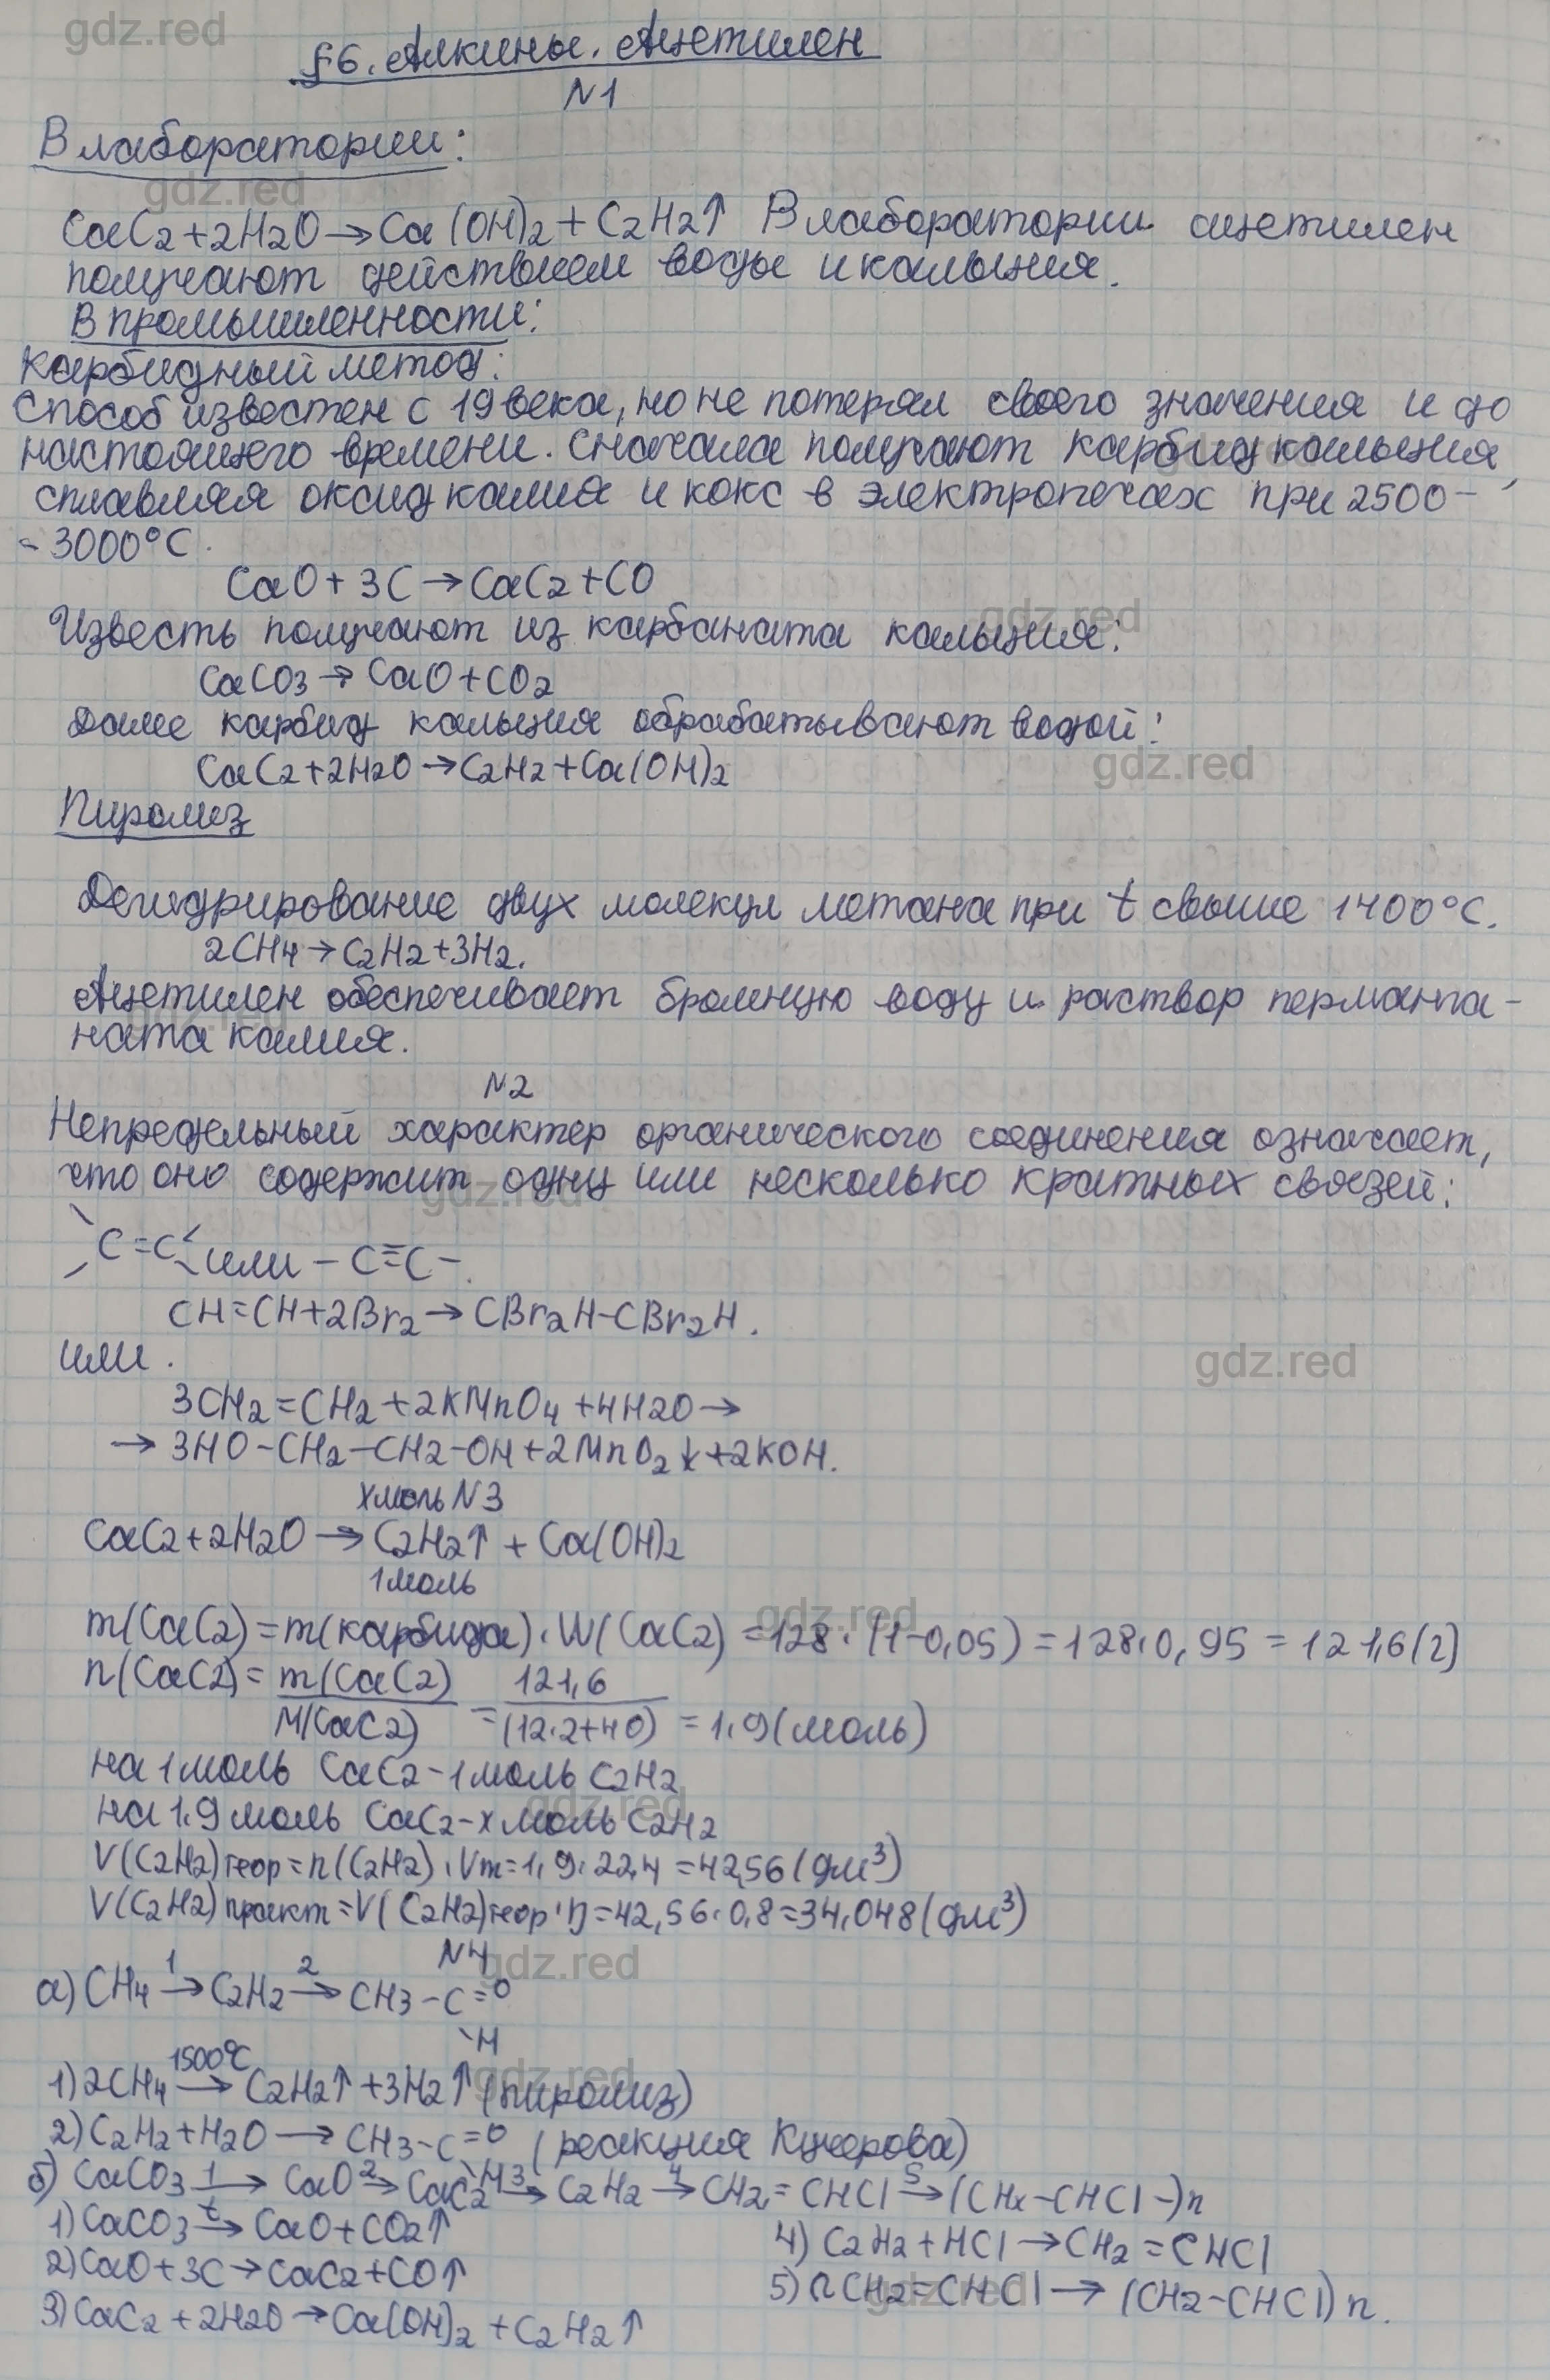 gdz.red
§6. Алкины. Ацетилен
N1
В лаборатории:
gdz.red
CaC2+2H2O→Ca(OH)2+C2H2↑ В лаборатории ацетилен
получают действием воды и кальция.
В промышленности:
Карбидный метод:
Способ известен с 19 века, но не потерял своего значения и до
настоящего времени. Сначала получают карбид кальция,
сплавляя оксид калия и кокс в электропечах при 2500-
-3000°C.
CaO+3C→CaC2+CO
gdz.red
Известь получают из карбаната кальция:
CaCO3→CaO+CO2
Далее карбид кальция обрабатывают водой:
gdz.red
CaC2+2H2O→C2H2+Ca(OH)2
Пиролиз
Дегидрирование двух молекул метана при t свыше 1400°C.
2CH4→C2H2+3H2.
Ацетилен обеспечивает бромную воду и раствор перманга-
ната калия.
N2
Непредельный характер органического соединения означает,
что оно содержит одну или несколько кратных связей:
gdz.red
C=C или -C≡C-.
CH≡CH+2Br2→CBr2H-CBr2H.
или.
gdz.red
3CH2=CH2+2KMnO4+4H2O→
→3HO-CH2-CH2-OH+2MnO2↓+2KOH.
x моль N3
CaC2+2H2O→C2H2↑+Ca(OH)2
1 моль
gdz.red
m(CaC2)=m(карбида)·W(CaC2)=128·(1-0,05)=128·0,95=121,6(г)
n(CaC2)=m(CaC2)/M(CaC2)=121,6/(12·2+40)=1,9(моль)
на 1 моль CaC2-1 моль C2H2
gdz.red
на 1,9 моль CaC2-x моль C2H2
V(C2H2)теор=n(C2H2)·Vm=1,9·22,4=42,56(дм³)
V(C2H2)практ=V(C2H2)теор·η=42,56·0,8=34,048(дм³)
N4
gdz.red
а) CH4 1→ C2H2 2→ CH3-C=O
\H
1500°C
gdz.red
1) 2CH4→C2H2↑+3H2↑ (пиролиз)
2) C2H2+H2O→CH3-C=O (реакция Кучерова)
\H
б) CaCO3 1→ CaO 2→ CaC2 3→ C2H2 4→ CH2=CHCl 5→ (CH2-CHCl-)n
1) CaCO3 t→ CaO+CO2↑
2) CaO+3C→CaC2+CO↑
3) CaC2+2H2O→Ca(OH)2+C2H2↑
4) C2H2+HCl→CH2=CHCl
gdz.red
5) nCH2=CHCl→(CH2-CHCl)n.